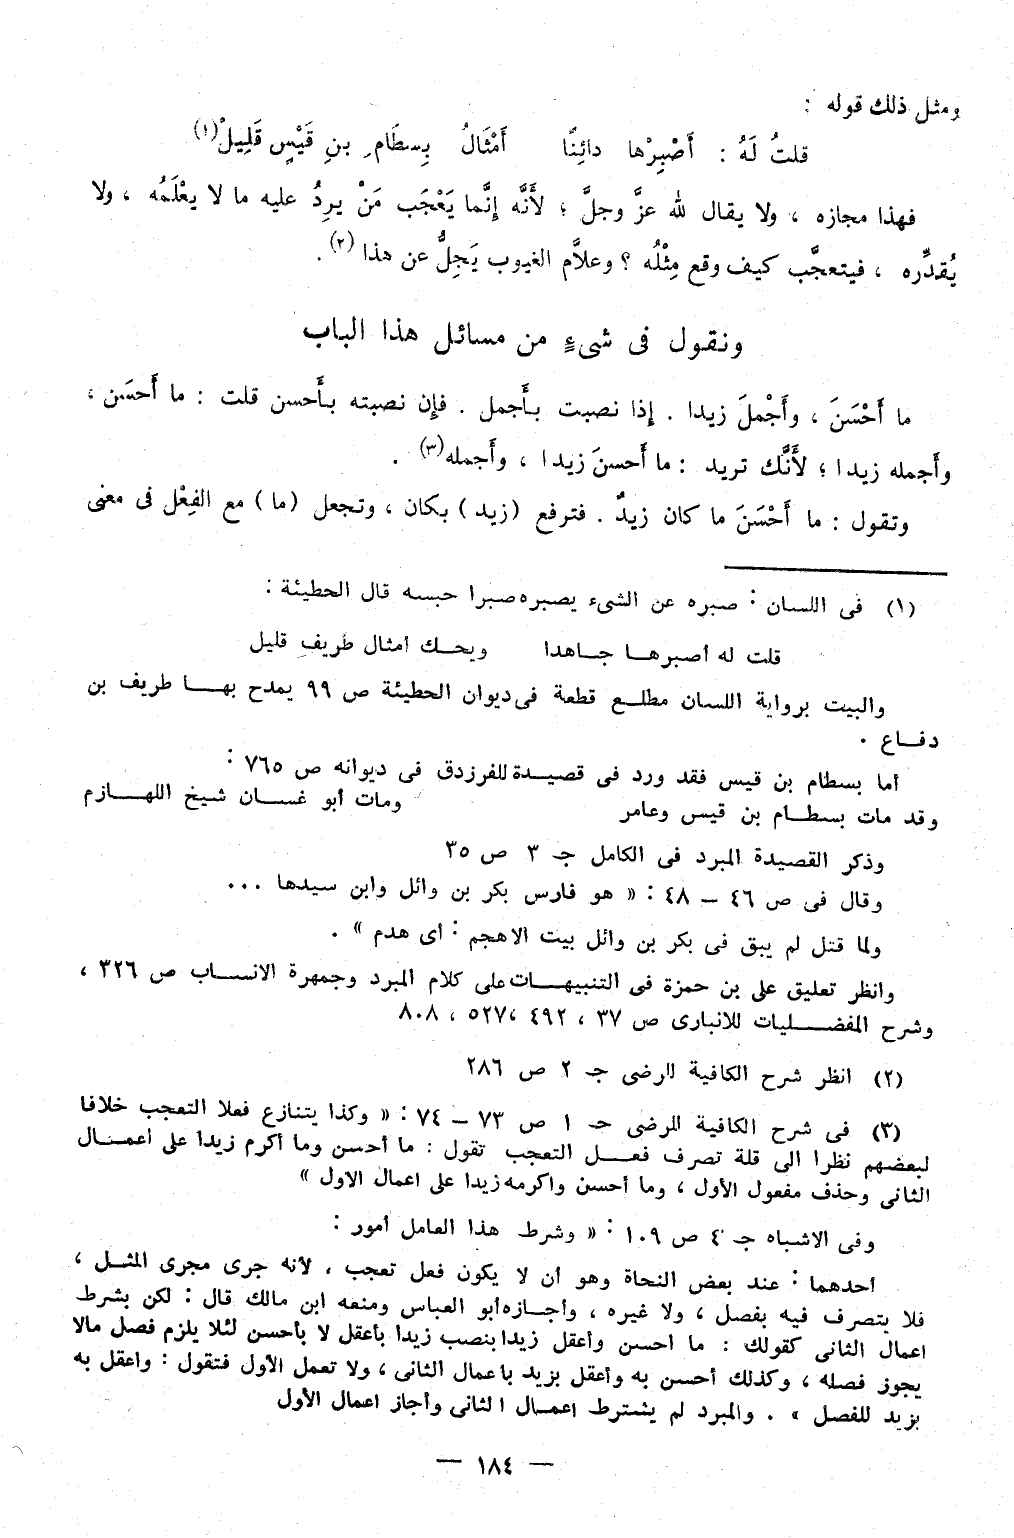 ومثل ذلك قوله :
قلتُ لَهُ : أَصْبِرْها دائِنًا أَمْثَالُ بِسطَام بنِ قَيْسٍ قَلِيلْ(١)
فهذا مجازه ، ولا يقال لله عزَّ وجلَّ ؛ لأَنَّه إنَّما يَعْجَب مَنْ يرِدُ عليه ما لا يعْلَمُه ، ولا
يُقدِّره ، فيتعجَّب كيف وقع مِثْلُه ؟ وعلاَّم الغيوب يَجِلُّ عن هذا (٢) .
ونقول فى شىءٍ من مسائل هذا الباب
ما أَحْسَنَ ، وأَجْملَ زيدا . إذا نصبت بأَجمل . فإن نصبته بأَحسن قلت : ما أَحسَن ،
وأَجمله زيدا ؛ لأَنَّك تريد : ما أَحسنَ زيدا ، وأَجمله(٣) .
وتقول : ما أَحْسَنَ ما كان زيدٌ . فترفع (زيد) بكان ، وتجعل (ما) مع الفِعْل فى معنى
(١) فى اللسان : صبره عن الشىء يصبره صبرا حبسه قال الحطيئة :
قلت له أصبرها جاهدا ويحك أمثال طريف قليل
والبيت برواية اللسان مطلع قطعة فى ديوان الحطيئة ص ٩٩ يمدح بها طريف بن
دفاع .
أما بسطام بن قيس فقد ورد فى قصيدة للفرزدق فى ديوانه ص ٧٦٥ :
وقد مات بسطام بن قيس وعامر ومات أبو غسان شيخ اللهازم
وذكر القصيدة المبرد فى الكامل جـ ٣ ص ٣٥
وقال فى ص ٤٦ – ٤٨ : « هو فارس بكر بن وائل وابن سيدها ...
ولما قتل لم يبق فى بكر بن وائل بيت الاهجم : أى هدم » .
وانظر تعليق على بن حمزة فى التنبيهات على كلام المبرد وجمهرة الانساب ص ٣٢٦ ،
وشرح المفضليات للانبارى ص ٣٧ ، ٤٩٢ ، ٥٢٧ ، ٨٠٨
(٢) انظر شرح الكافية للرضى جـ ٢ ص ٢٨٦
(٣) فى شرح الكافية للرضى جـ ١ ص ٧٣ – ٧٤ : « وكذا يتنازع فعلا التعجب خلافا
لبعضهم نظرا الى قلة تصرف فعل التعجب تقول : ما أحسن وما أكرم زيدا على أعمال
الثانى وحذف مفعول الأول ، وما أحسن واكرمه زيدا على اعمال الاول »
وفى الاشباه جـ ٤ ص ١٠٩ : « وشرط هذا العامل أمور :
أحدهما : عند بعض النحاة وهو أن لا يكون فعل تعجب ، لأنه جرى مجرى المثل ،
فلا يتصرف فيه بفصل ، ولا غيره ، وأجازه أبو العباس ومنعه ابن مالك قال : لكن بشرط
اعمال الثانى كقولك : ما احسن وأعقل زيدا بنصب زيدا بأعقل لا بأحسن لئلا يلزم فصل مالا
يجوز فصله ، وكذلك أحسن به وأعقل بزيد باعمال الثانى ، ولا تعمل الأول فتقول : واعقل به
بزيد للفصل » . والمبرد لم يشترط اعمال الثانى وأجاز اعمال الأول
— ١٨٤ —